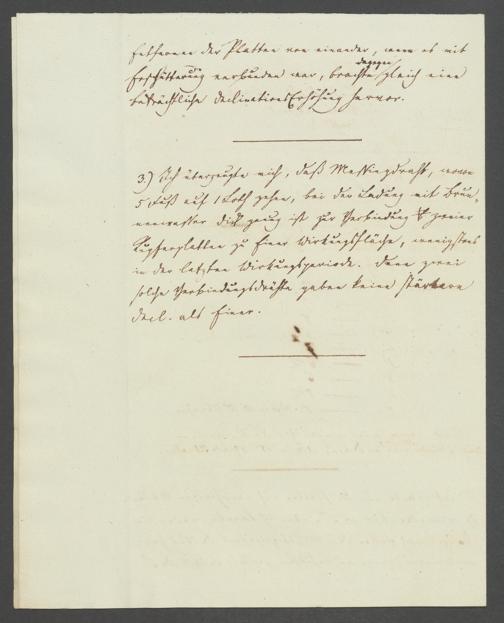 Entfernen der Platten von einander, wenn es mit
Erschütterung verbunden war, brachte dagegen gleich eine
beträchtliche Declinations Erhöhung hervor.
3.) Ich überzeugte mich, daß Messingdraht, wovon
5 Fuß auf 1 Loth gehen, bei der Ladung mit Brun-
nenwasser dick genug ist zur Verbindung zweier
Kupferplatten zu Einer Wirkungsfläche, wenigstens
in der letzten Wirkungsperiode. Denn zwei
solche Verbindungsdrähte gaben keine stärkere
Decl. als Einer.